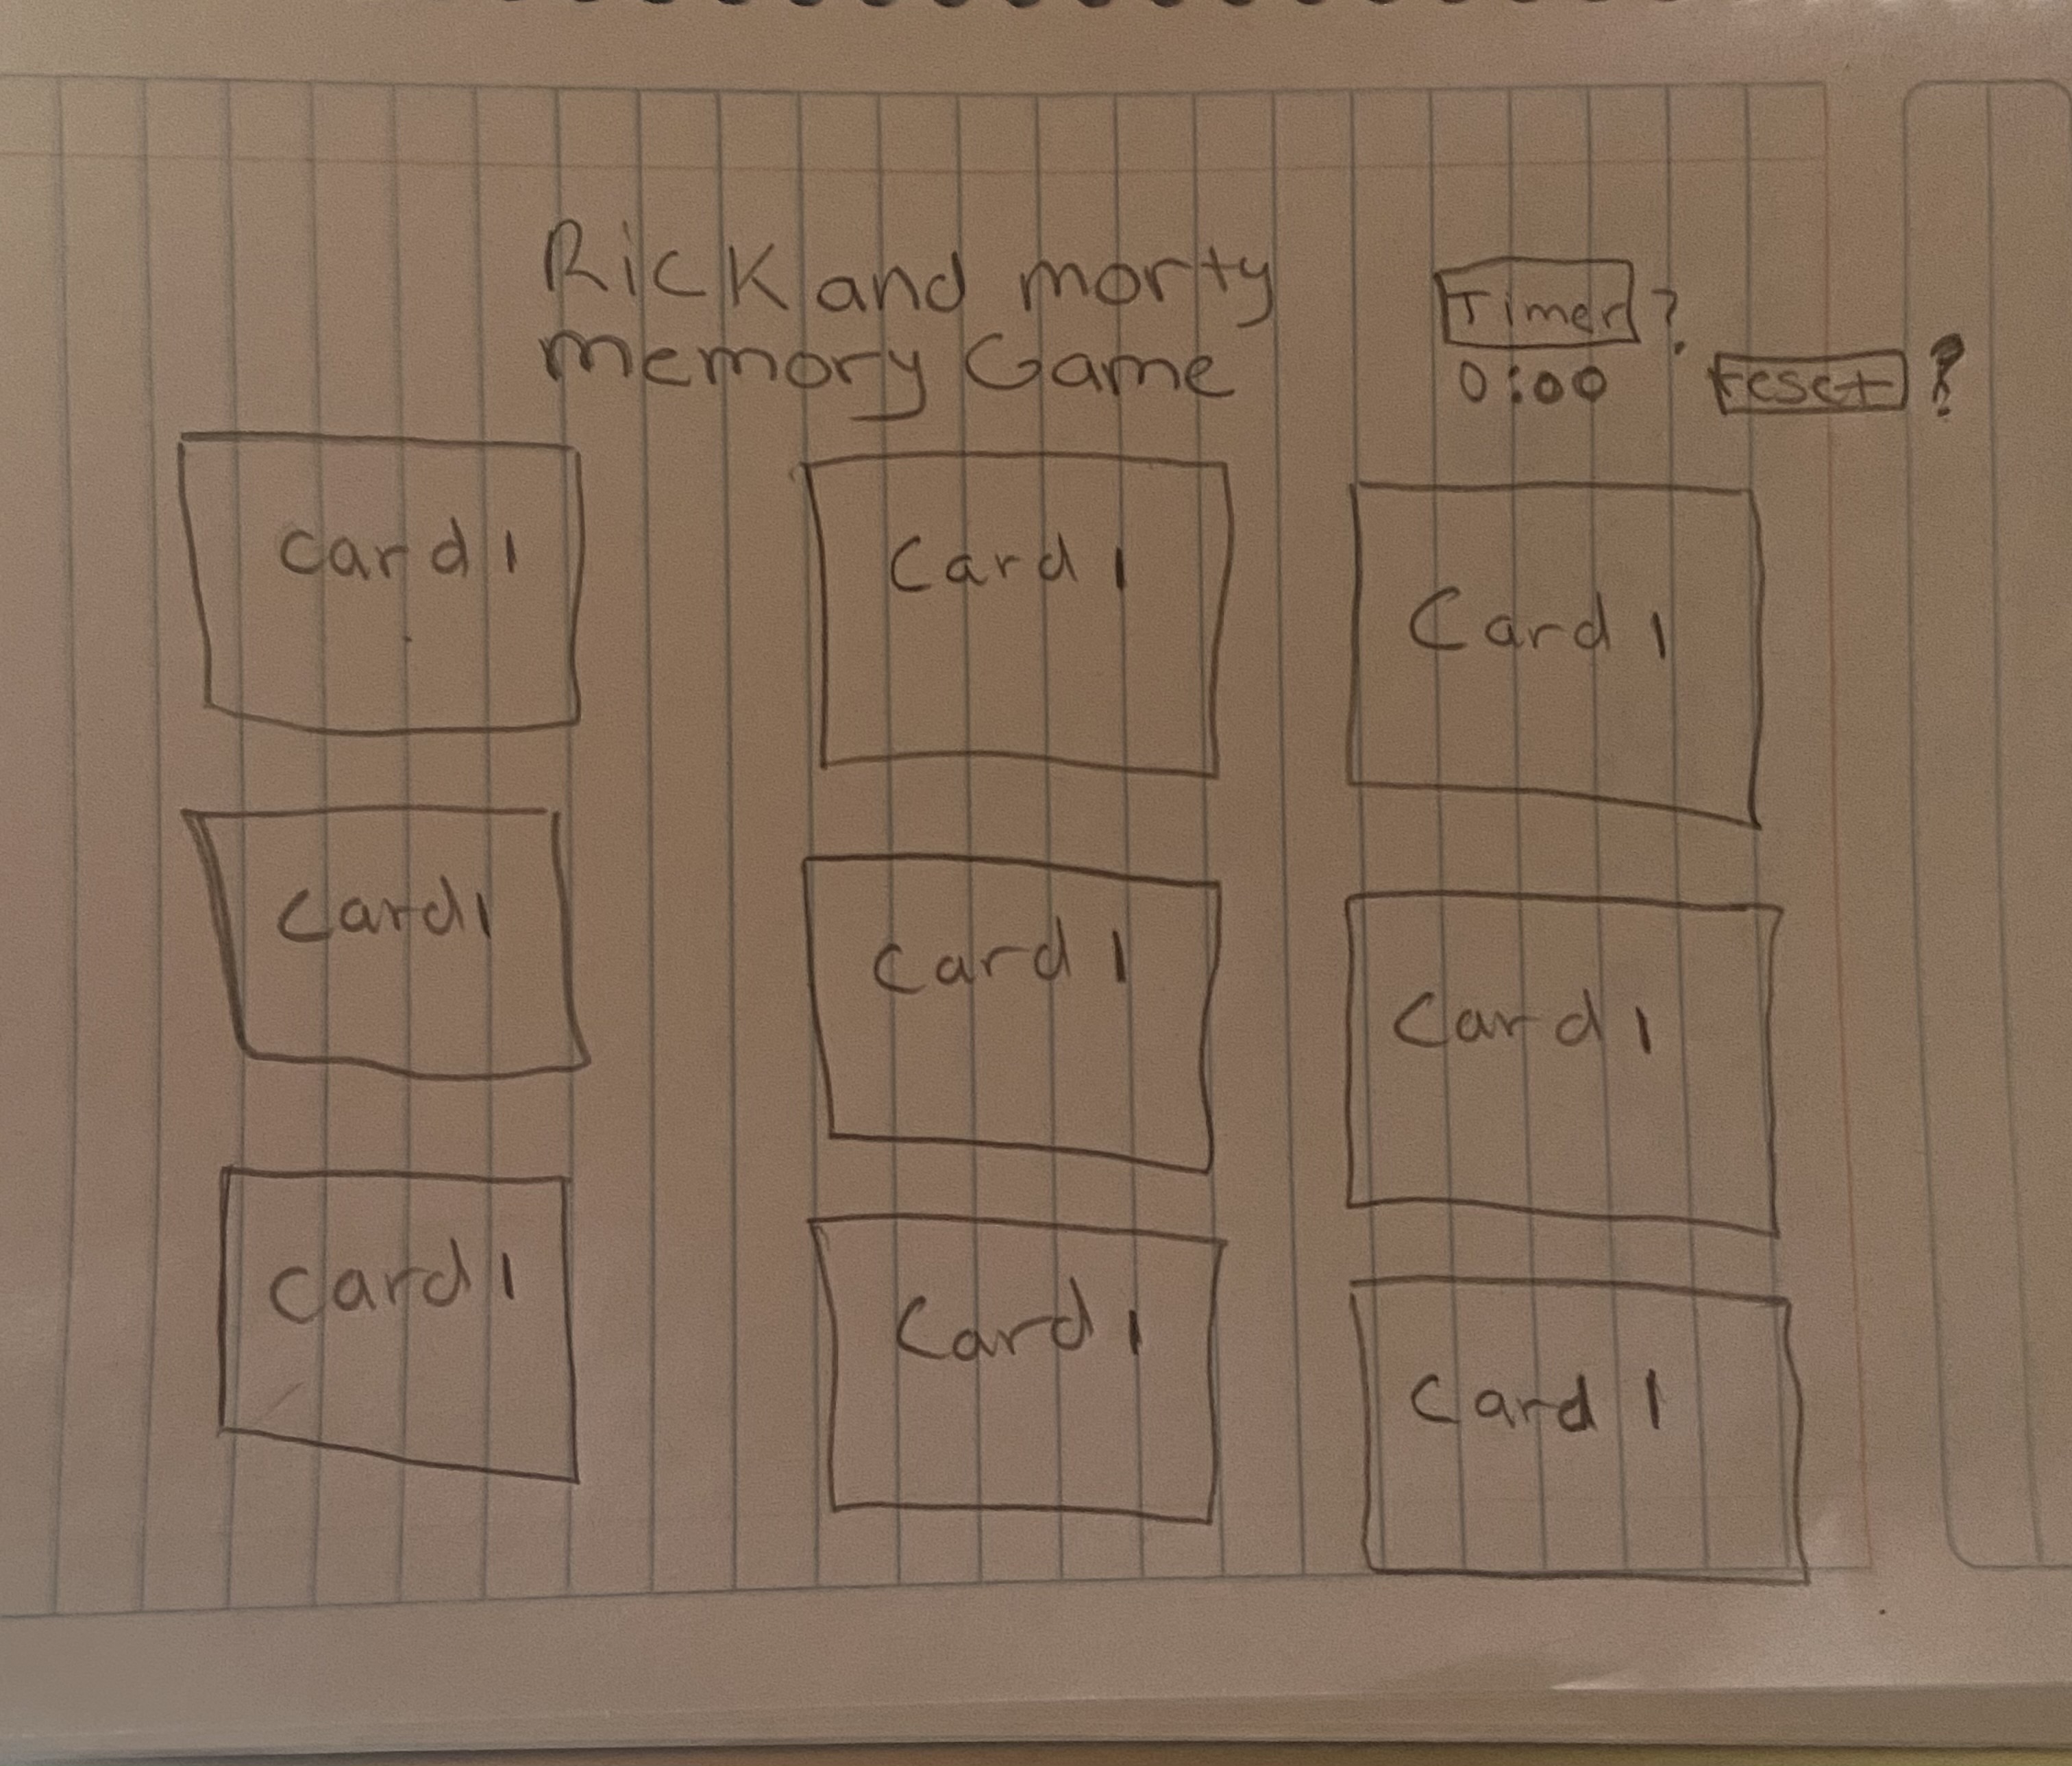 Rick and morty
memory Game
Timer ?
0:00
reset ?
card 1
Card 1
Card 1
Card 1
Card 1
Card 1
Card 1
Card 1
Card 1